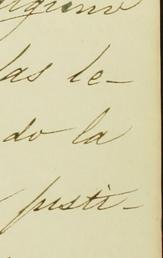 das le-
do la
justi-